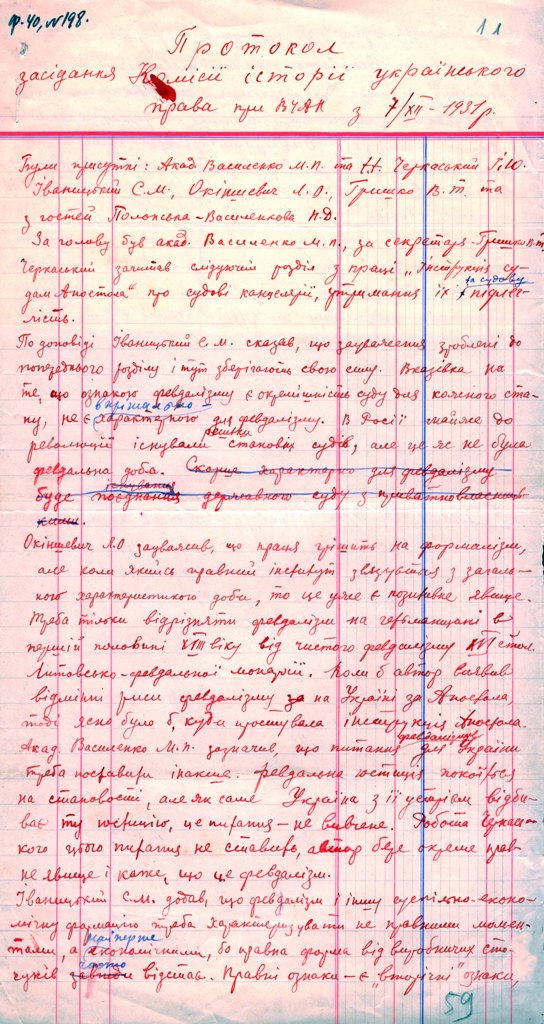 ф. 40, № 198.
11
Протокол
засідання Комісії історії українського
права при ВУАН з 7/XII - 1931 р.
Були присутні: Акад. Василенко М.П. та Черкаський І.Ю.
Іваницький С.М., Окіншевич Л.О., Гришко В.Т. та
з гостей Полонська-Василенкова Н.Д.
За голову був акад. Василенко М.П., за секретаря - Гришко В.Т.
Черкаський зачитав слідуючий розділ з праці „Інструкція су-
та судову
дам Апостола" про судові канцелярії, утримання їх підлег-
лість.
По доповіді Іваницький С.М. сказав, що зауваження зроблені до
попереднього розділу і тут зберігають свою силу. Вказівка на
те, що ознакою февдалізму є окремішність суду для кожного ста-
ну, не є характерного для февдалізму. В Росії майже до
рештки
революції існували станових судів, але це як не була
февдальна доба. Скорше характерно для февдалізму
існування
буде поєднання державного суду з приватновласниць-
ким.
Окіншевич Л.О зауважив, що праця грішить на формалізм,
але коли якийсь правний інститут звязується з загаль-
ною характеристикою доби, то це уже є позитивне явище.
Треба тільки відрізняти февдалізм на гетьманщині в
першій половині XVIII віку від чистого февдалізму XVI стол.
Литовсько-февдальної монархії. Коли б автор виявив
відмінні риси февдалізму на Україні за Апостола,
тоді ясно було б, куди простувала інструкція Апостола.
февдалізму
Акад. Василенко М.П. зазначив, що питання для України
треба поставити інакше. Февдальна юстиція покоїться
на становості, але як саме Україна з її устроєм відби-
ває ту юстицію, це питання - не вивчене. Робота Черкась-
кого цього питання не ставить, автор бере окреме прав-
не явище і каже, що це февдалізм.
Іваницький С.М. додав, що февдалізм і іншу суспільно-еконо-
мічну формацію треба характеризувати не правними момен-
найперше
тами, а економічними, бо правна форма від виробничих сто-
часто
сунків завжди відстає. Правні ознаки - є „вторічні" ознаки,
59